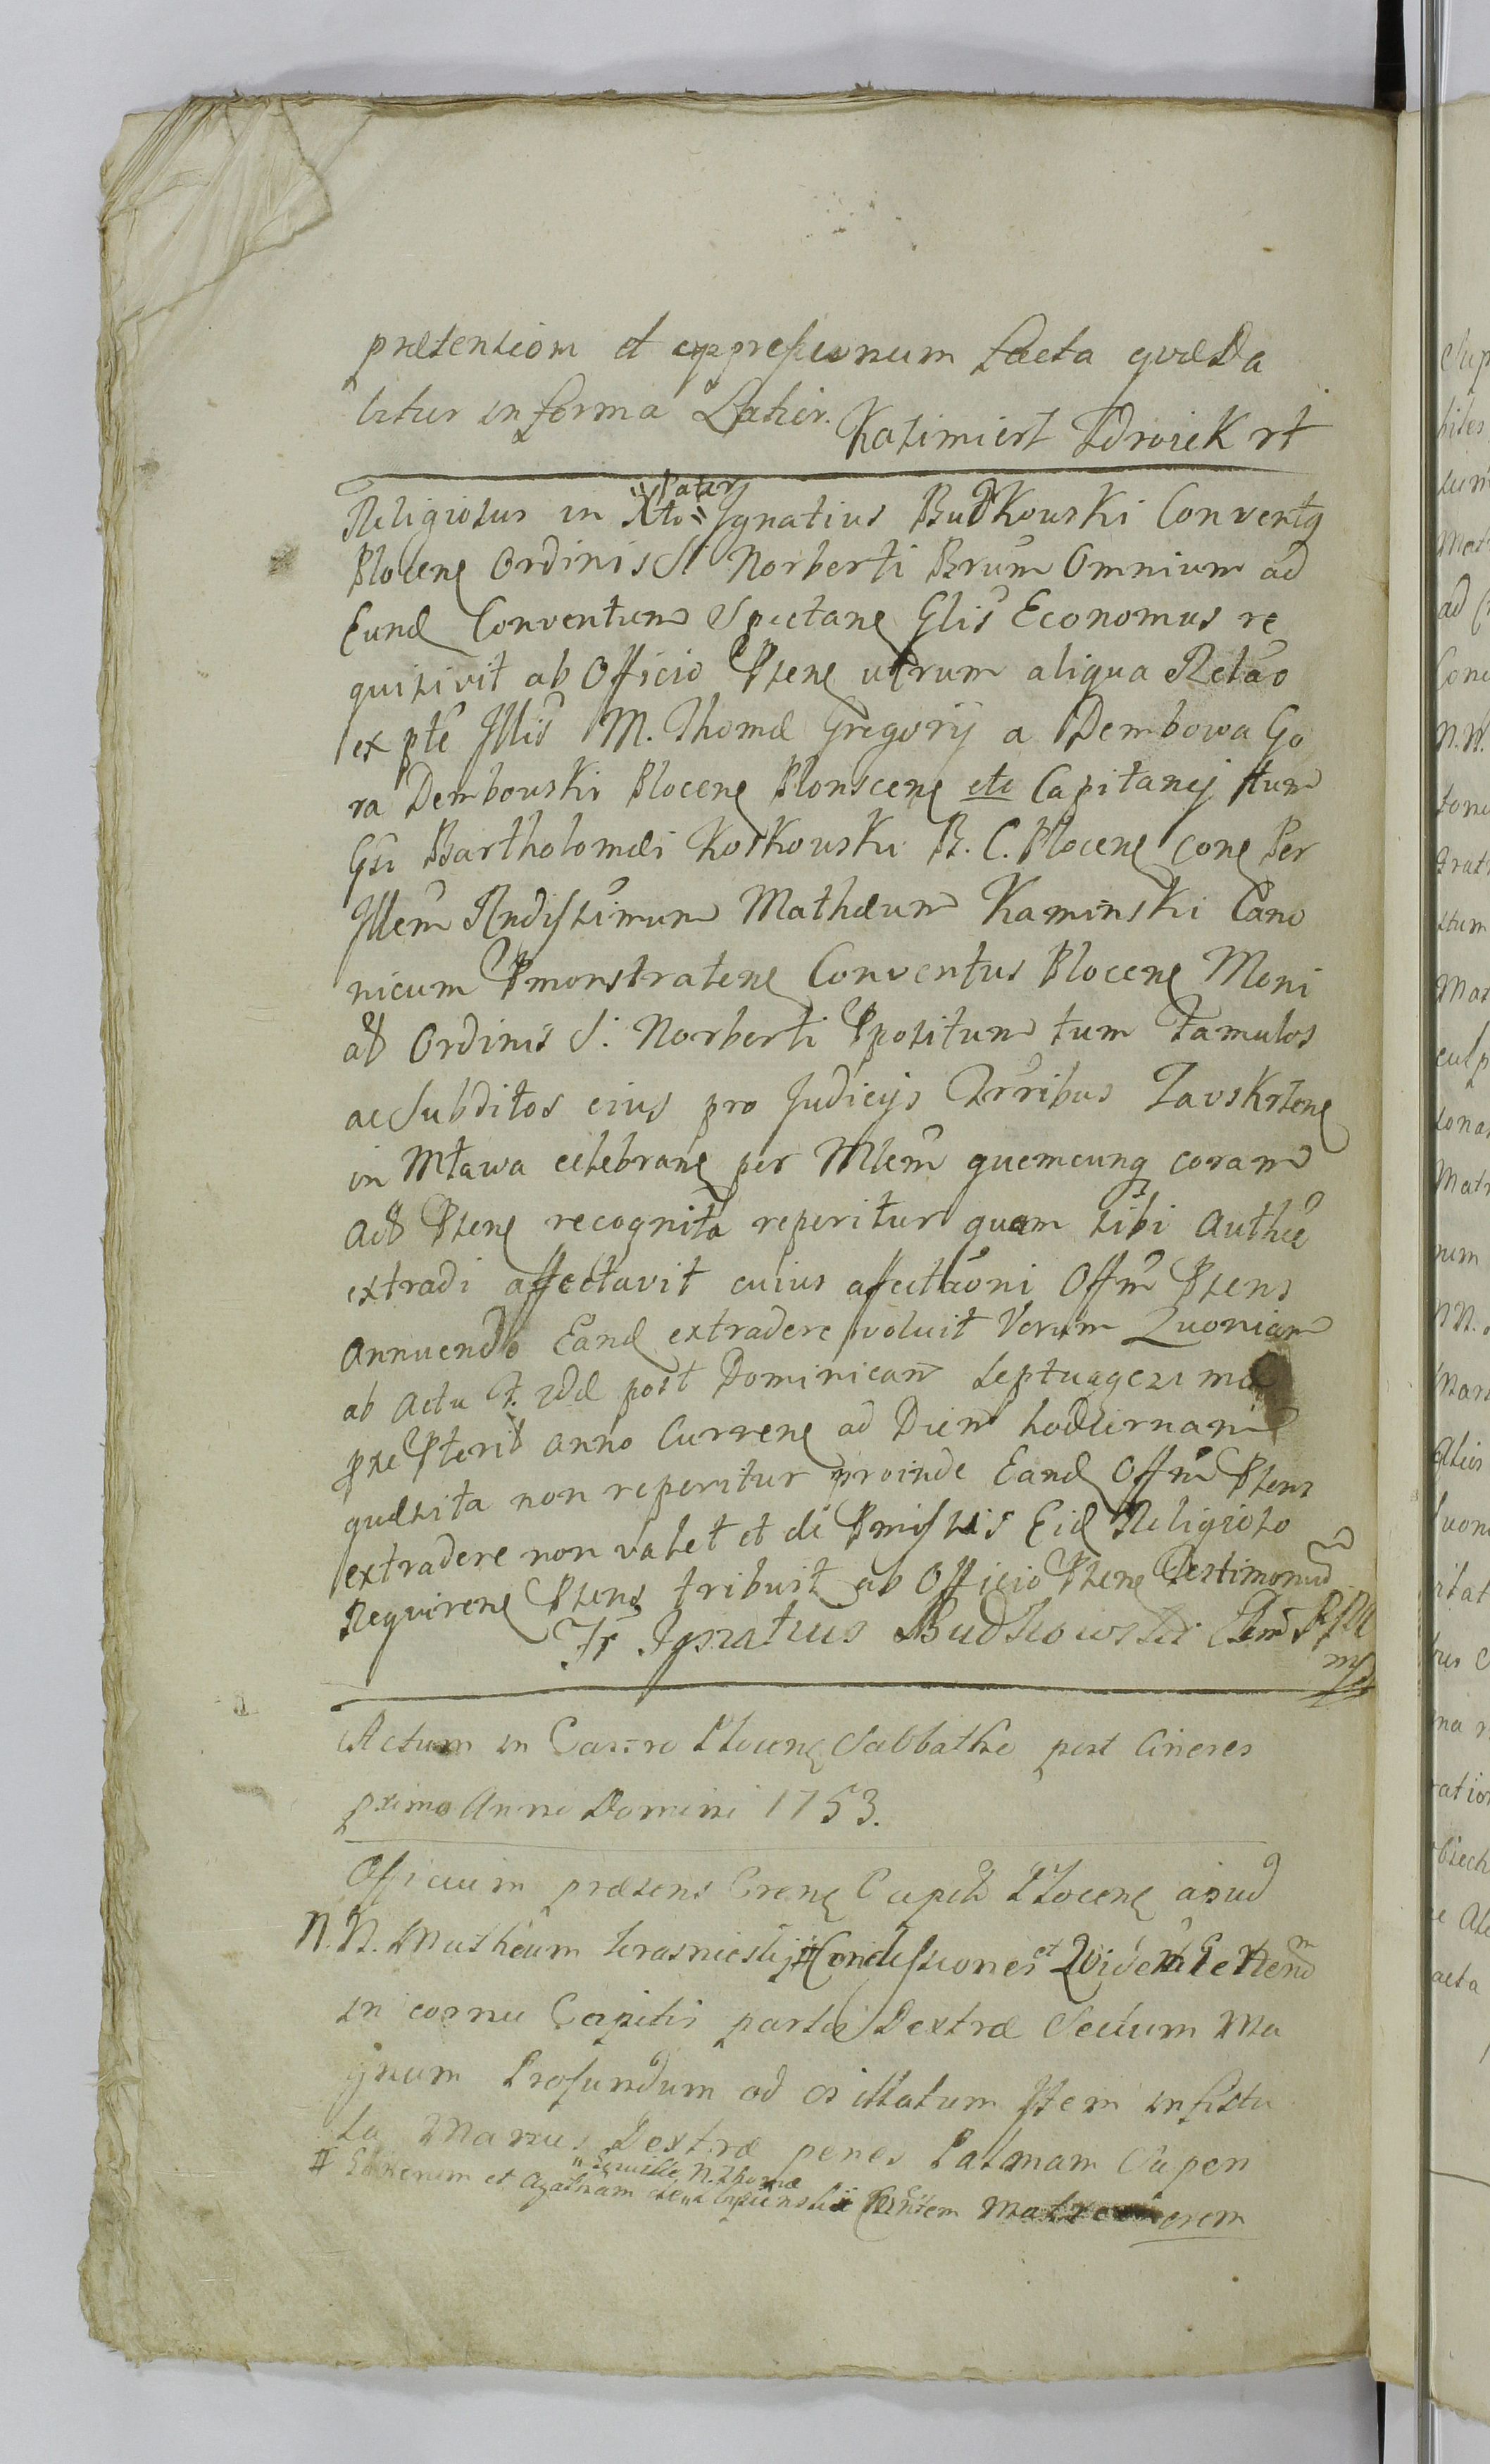 prætensiom et oppressionum facta quæ Da
bitur in forma Latior. Kazimierz Zdroiek rt
Religiosus in Xto Pater Ignatius Budkowski Conventq
Plocen Ordinis S. Norberti Brum Omnium ad
Eund Conventum Spectan Glis Economus re
quisivit ab Officio Psen utrum aliqua Relao
ex pte Illis M. Thomæ Gregorij a Dembowa Go
ra Dembowski Plocen Plonscen etc Capitanej tum
Gsi Bartholomæi Koskowski B. C. Plocen con Per
Illem Rndissimum Mathæum Kaminski Cano
nicum Pmonstraten Conventus Plocen Moni
al Ordinis S. Norberti Ppositum tum Famulos
ac Subditos eius pro Judicijs Trribus Zavskrzen
in Mława celebran per Mlem quemcunq coram
Act Psen recognita reperitur quam sibi Authee
extradi affectavit cuius affectaoni Offm Psens
Annuendo Eand extradere voluit Verum Quoniam
ab Actu F. 2dæ post Dominicam Septuagezimæ
pxe Pterit anno Curren ad Diem hodiernam
quæsita non reperitur proinde Eand Offm Psens
extradere non valet et de Pmissis Eid Religioso
Requiren Psens tribuit ab Officio Psen Testimonium
Fr Ignatius Budkowski
mp
Actum in Castro Plocen Sabbatho post Cineres
pximo Anno Domini 1753.
Officium præsens Cren Capitl Plocen apud
N. N. Matheum Condessiones et Widem
in cornu Capitis partis Dextræ Sectum Ma
gnum Profundum ad os illatum Item in fistu
la Manus Dextræ penes Palmam Super
et Agatham N. Thomæ orem